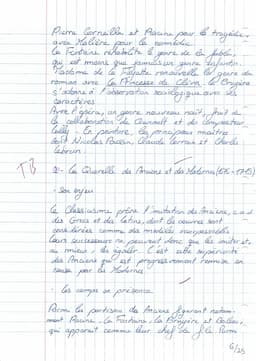 Pierre Corneille et Racine pour la tragédie,
avec Molière pour la comédie.
La Fontaine réhabilite le genre de la fable,
qui est moins que jamais un genre enfantin.
Madame de La Fayette renouvelle le genre du
roman avec La Princesse de Clèves. La Bruyère
s'adonne à l'observation sociologique avec ses
caractères.
Avec l'opéra, un genre nouveau naît, fruit de
la collaboration de Quinault et du compositeur
Lully. En peinture, les principaux maîtres
sont Nicolas Poussin, Claude Lorrain et Charles
Lebrun.
TB
2- La Querelle des Anciens et des Modernes (1676-1715)
- Son enjeu
Le Classicisme prône l'imitation des Anciens, c.a.d
des Grecs et des Latins, dont les oeuvres sont
considérées comme des modèles insurpassables.
Leurs successeurs ne peuvent donc que les imiter et,
au mieux, les égaler. C'est cette supériorité
des Anciens qui est progressivement remise en
cause par les Modernes.
- Les camps en présence
Parmi les partisans des Anciens figurent notam-
ment Racine, La Fontaine, La Bruyère et Boileau,
qui apparaît comme leur chef de file. Parmi
6/25